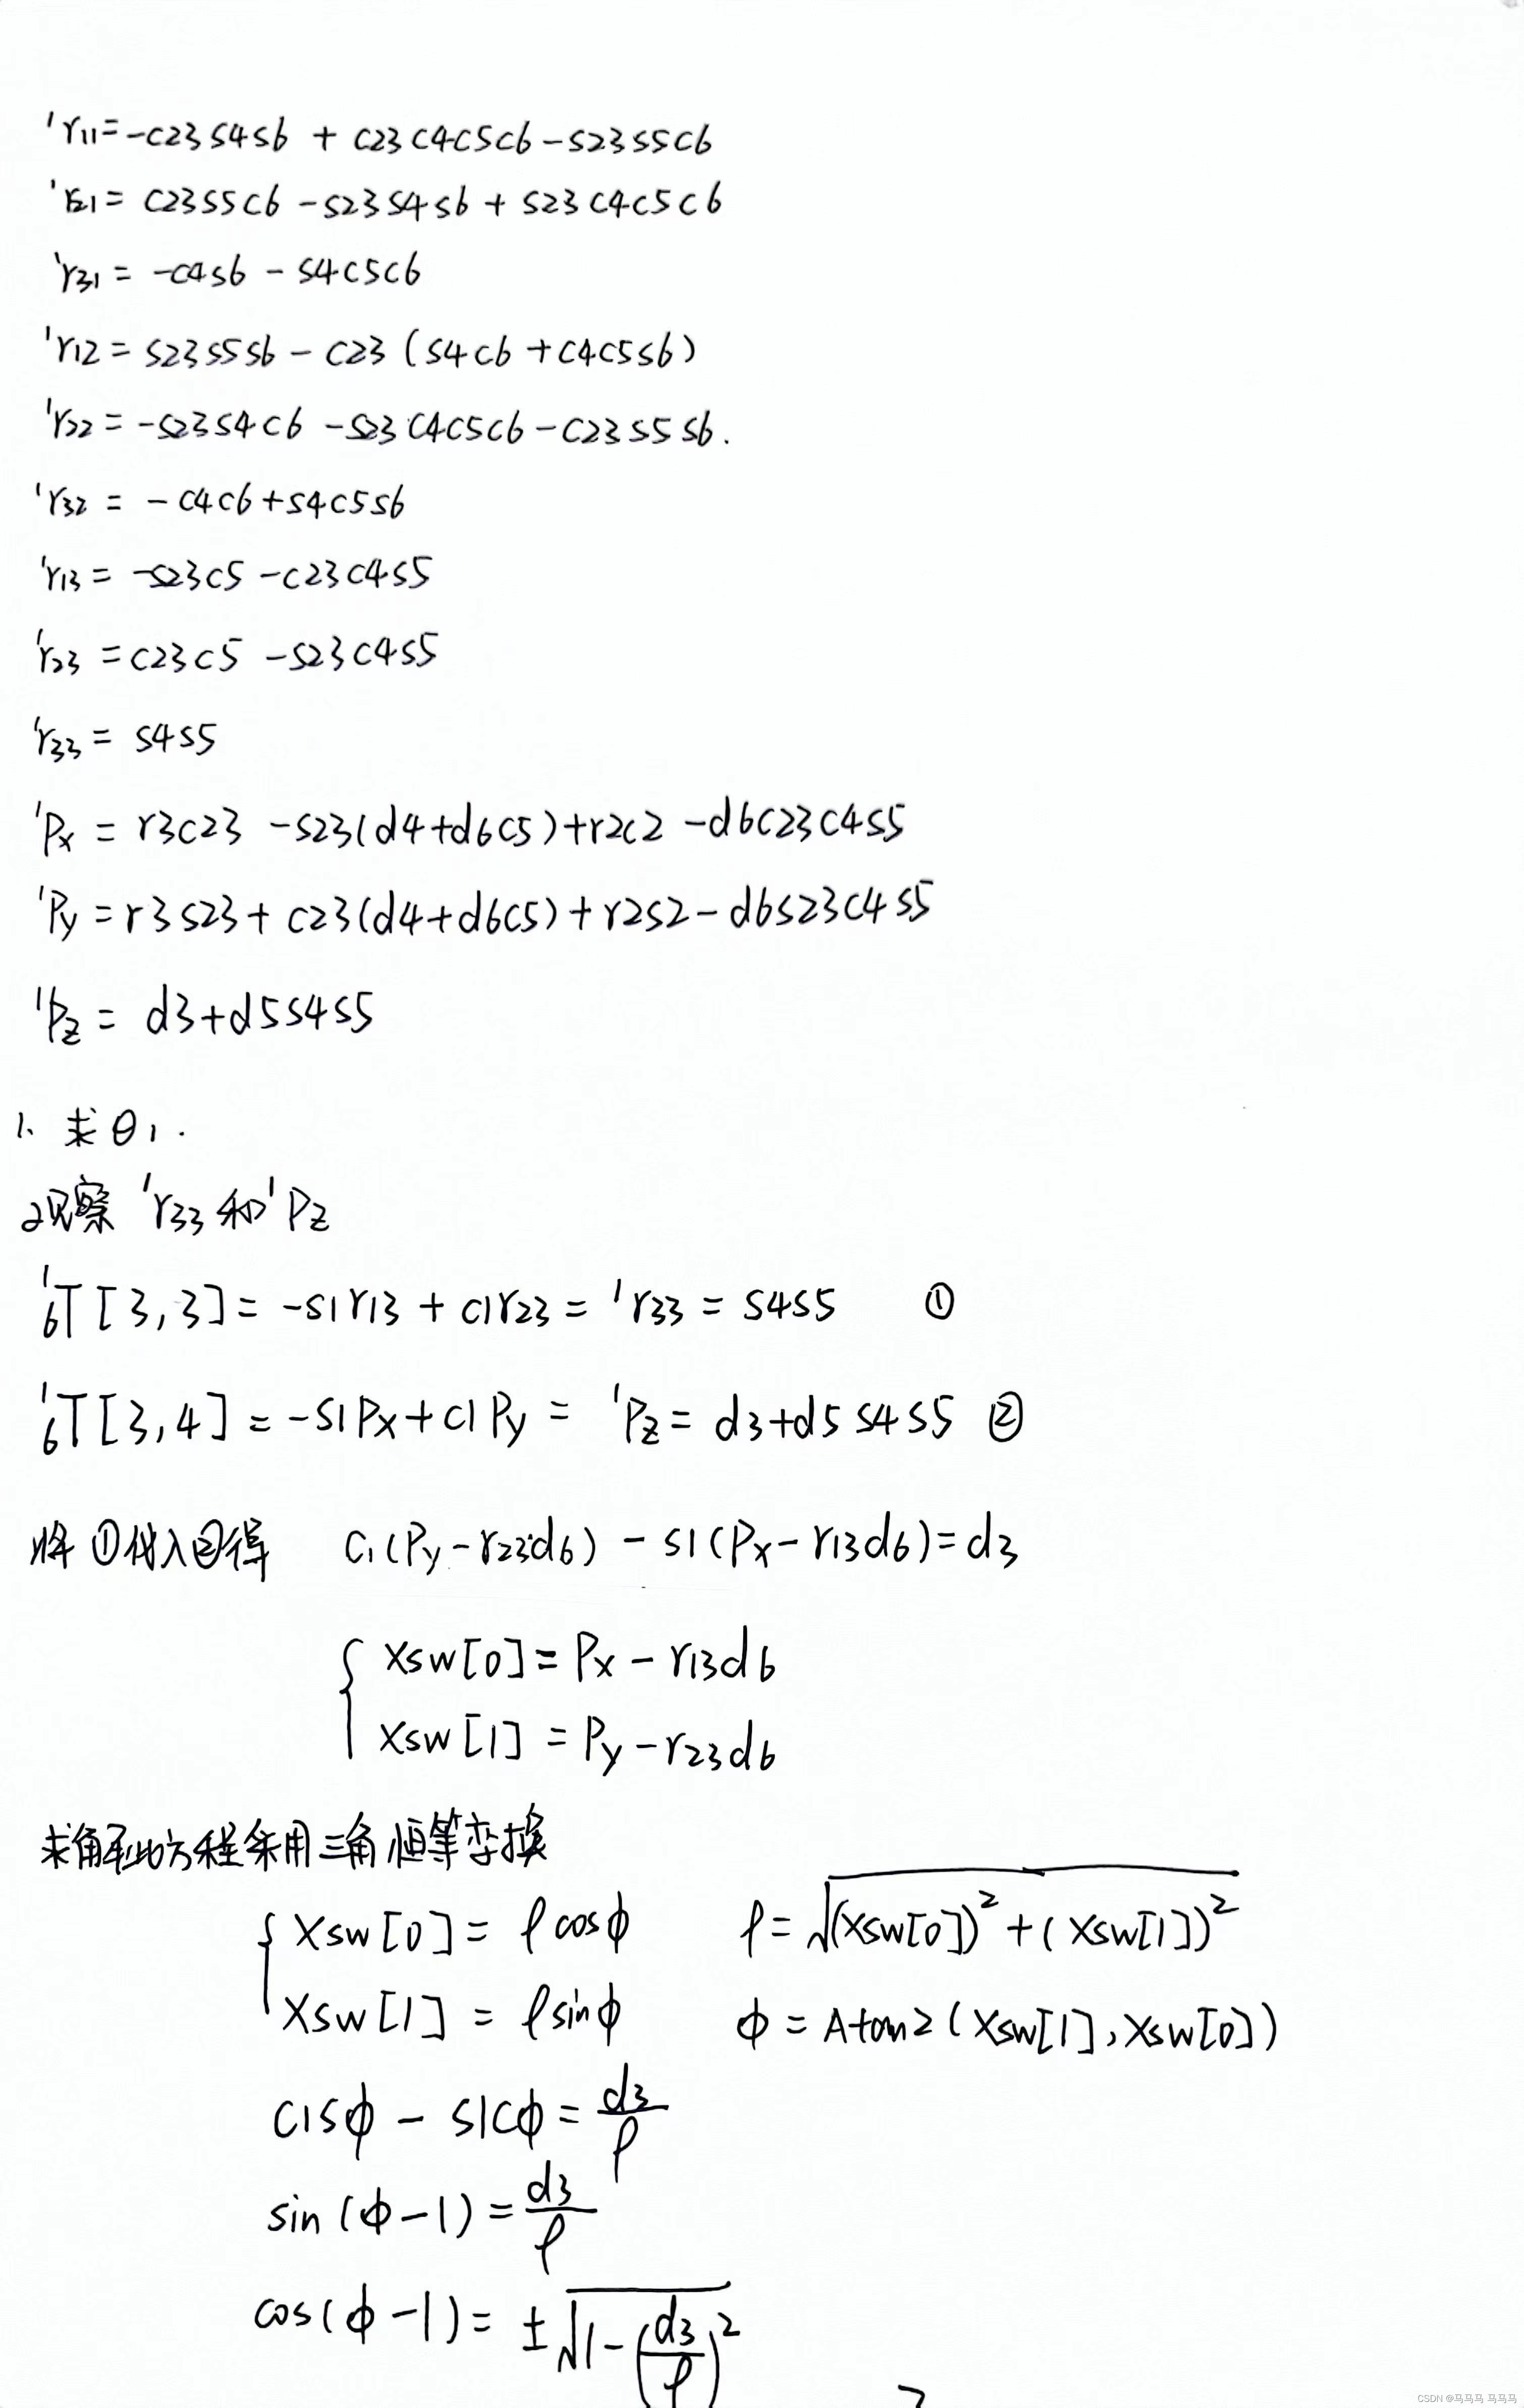 'r11=-c23s4s6 + c23c4c5c6-s23s5c6
'r21= c23s5c6 -s23s4s6+ s23c4c5c6
'r31 = -c4s6 - s4c5c6
'r12 = s23s5s6 - c23 (s4c6+c4c5s6)
'r22 = -s23s4c6 -s23c4c5c6-c23s5s6.
'r32 = -c4c6+s4c5s6
'r13 = -s23c5 -c23c4s5
'r23 =c23c5 -s23c4s5
'r33 = s4s5
'Px = r3c23 -s23(d4+d6c5)+r2c2 -d6c23c4s5
'Py = r3s23+ c23(d4+d6c5)+r2s2-d6s23c4s5
'Pz = d3+d5s4s5
1、求θ1.
观察 'r33和'Pz
¹₆T[3,3]= -s1r13 + c1r23 = 'r33 = s4s5 ①
¹₆T[3,4] = -s1Px+c1Py = 'Pz = d3+d5s4s5 ②
将①代入②得 c1(Py-r23d6) - s1(Px-r13d6)=d3
{ xsw[0]= Px - r13d6
xsw[1] = Py-r23d6
求解此方程采用三角恒等变换
{ xsw[0]= ρcosϕ ρ=√(xsw[0])²+(xsw[1])²
xsw[1] = ρsinϕ ϕ = Atan2(xsw[1],xsw[0])
c1sϕ - s1cϕ = d3/ρ
sin(ϕ-1)= d3/ρ
cos(ϕ-1)= ±√1-(d3/ρ)²
CSDN @马马马 马马马